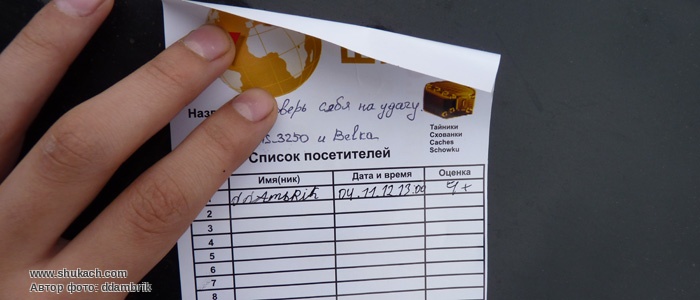 Назв
верь себя на удачу
s.3250 и Belka
Тайники
Схованки
Caches
Schowku
Список посетителей
Имя(ник) Дата и время Оценка
ddAmbRik 04.11.12 13.00 4+
2
3
4
5
6
7
8
www.shukach.com
Автор фото: ddambrik